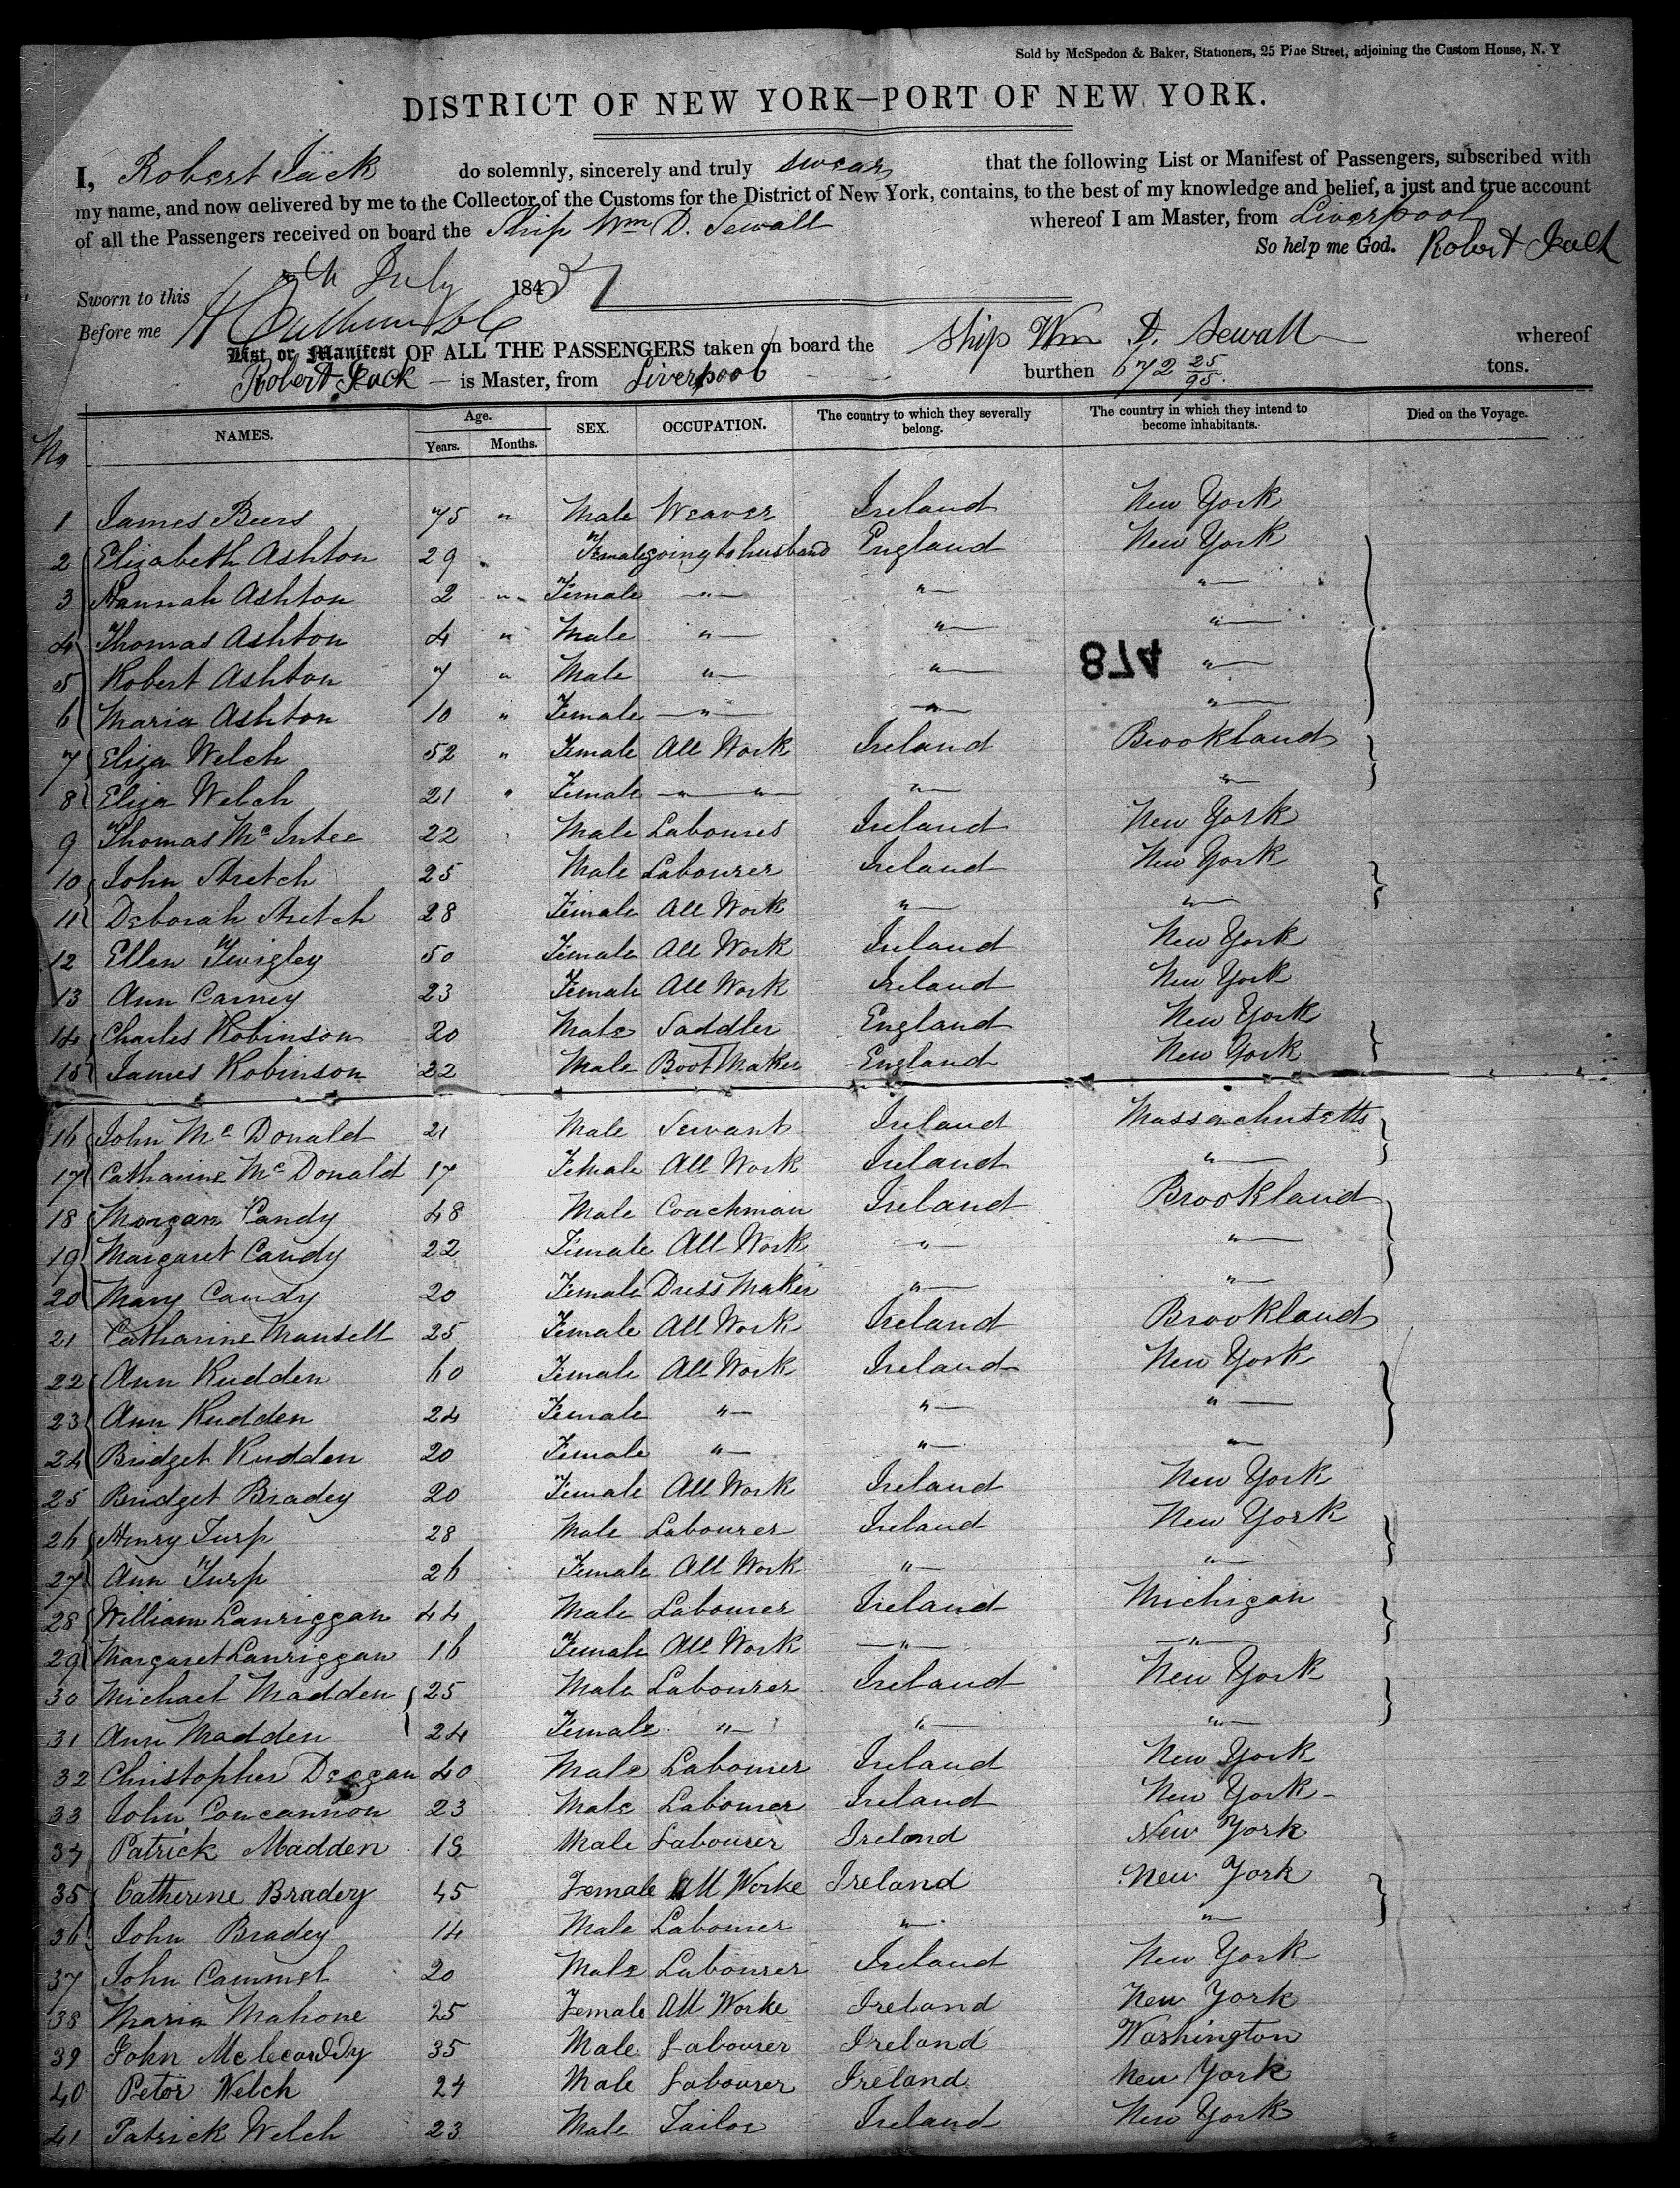 Sold by McSpedon & Baker, Stationers, 25 Pine Street, adjoining the Custom House, N. Y
DISTRICT OF NEW YORK—PORT OF NEW YORK.
I, Robert Jack do solemnly, sincerely and truly swear that the following List or Manifest of Passengers, subscribed with
my name, and now delivered by me to the Collector of the Customs for the District of New York, contains, to the best of my knowledge and belief, a just and true account
of all the Passengers received on board the Ship Wm D. Sewall whereof I am Master, from Liverpool
So help me God. Robert Jack
Sworn to this th July 1847
Before me
List or Manifest OF ALL THE PASSENGERS taken on board the Ship Wm D. Sewall whereof
Robert Jack — is Master, from Liverpool burthen 672 25/95 tons.
No NAMES. Age. Years. Months. SEX. OCCUPATION. The country to which they severally belong. The country in which they intend to become inhabitants. Died on the Voyage.
1 James Beers 75 " Male Weaver Ireland New York
2 Elizabeth Ashton 29 " Female going to husband England New York
3 Hannah Ashton 2 " Female " " "
4 Thomas Ashton 4 " Male " " "
874
5 Robert Ashton 7 " Male " " "
6 Maria Ashton 10 " Female " " "
7 Eliza Welch 52 " Female All Work Ireland Brookland
8 Eliza Welch 21 " Female " " " "
9 Thomas Mc Intee 22 Male Labourer Ireland New York
10 John Stretch 25 Male Labourer Ireland New York
11 Deborah Stretch 28 Female All Work " "
12 Ellen Twigley 50 Female All Work Ireland New York
13 Ann Carney 23 Female All Work Ireland New York
14 Charles Robinson 20 Male Saddler England New York
15 James Robinson 22 Male Boot Maker England New York
16 John Mc Donald 21 Male Servant Ireland Massachusetts
17 Catharine Mc Donald 17 Female All Work Ireland "
18 Morgan Candy 48 Male Coachman Ireland Brookland
19 Margaret Candy 22 Female All Work " "
20 Mary Candy 20 Female Dress Maker " "
21 Catharine Mansell 25 Female All Work Ireland Brookland
22 Ann Rudden 60 Female All Work Ireland New York
23 Ann Rudden 24 Female " " "
24 Bridget Rudden 20 Female " " "
25 Bridget Bradey 20 Female All Work Ireland New York
26 Henry Turp 28 Male Labourer Ireland New York
27 Ann Turp 26 Female All Work " "
28 William Lanriggan 44 Male Labourer Ireland Michigan
29 Margaret Lanriggan 16 Female All Work " "
30 Michael Madden 25 Male Labourer Ireland New York
31 Ann Madden 24 Female " " "
32 Christopher Deegan 40 Male Labourer Ireland New York
33 John Concannon 23 Male Labourer Ireland New York
34 Patrick Madden Male Labourer Ireland New York
35 Catherine Bradey 45 Female All Worke Ireland New York
36 John Bradey 14 Male Labourer " "
37 John Cammel 20 Male Labourer Ireland New York
38 Maria Mahone 25 Female All Worke Ireland New York
39 John 35 Male Labourer Ireland Washington
40 Peter Welch 24 Male Labourer Ireland New York
41 Patrick Welch 23 Male Tailor Ireland New York